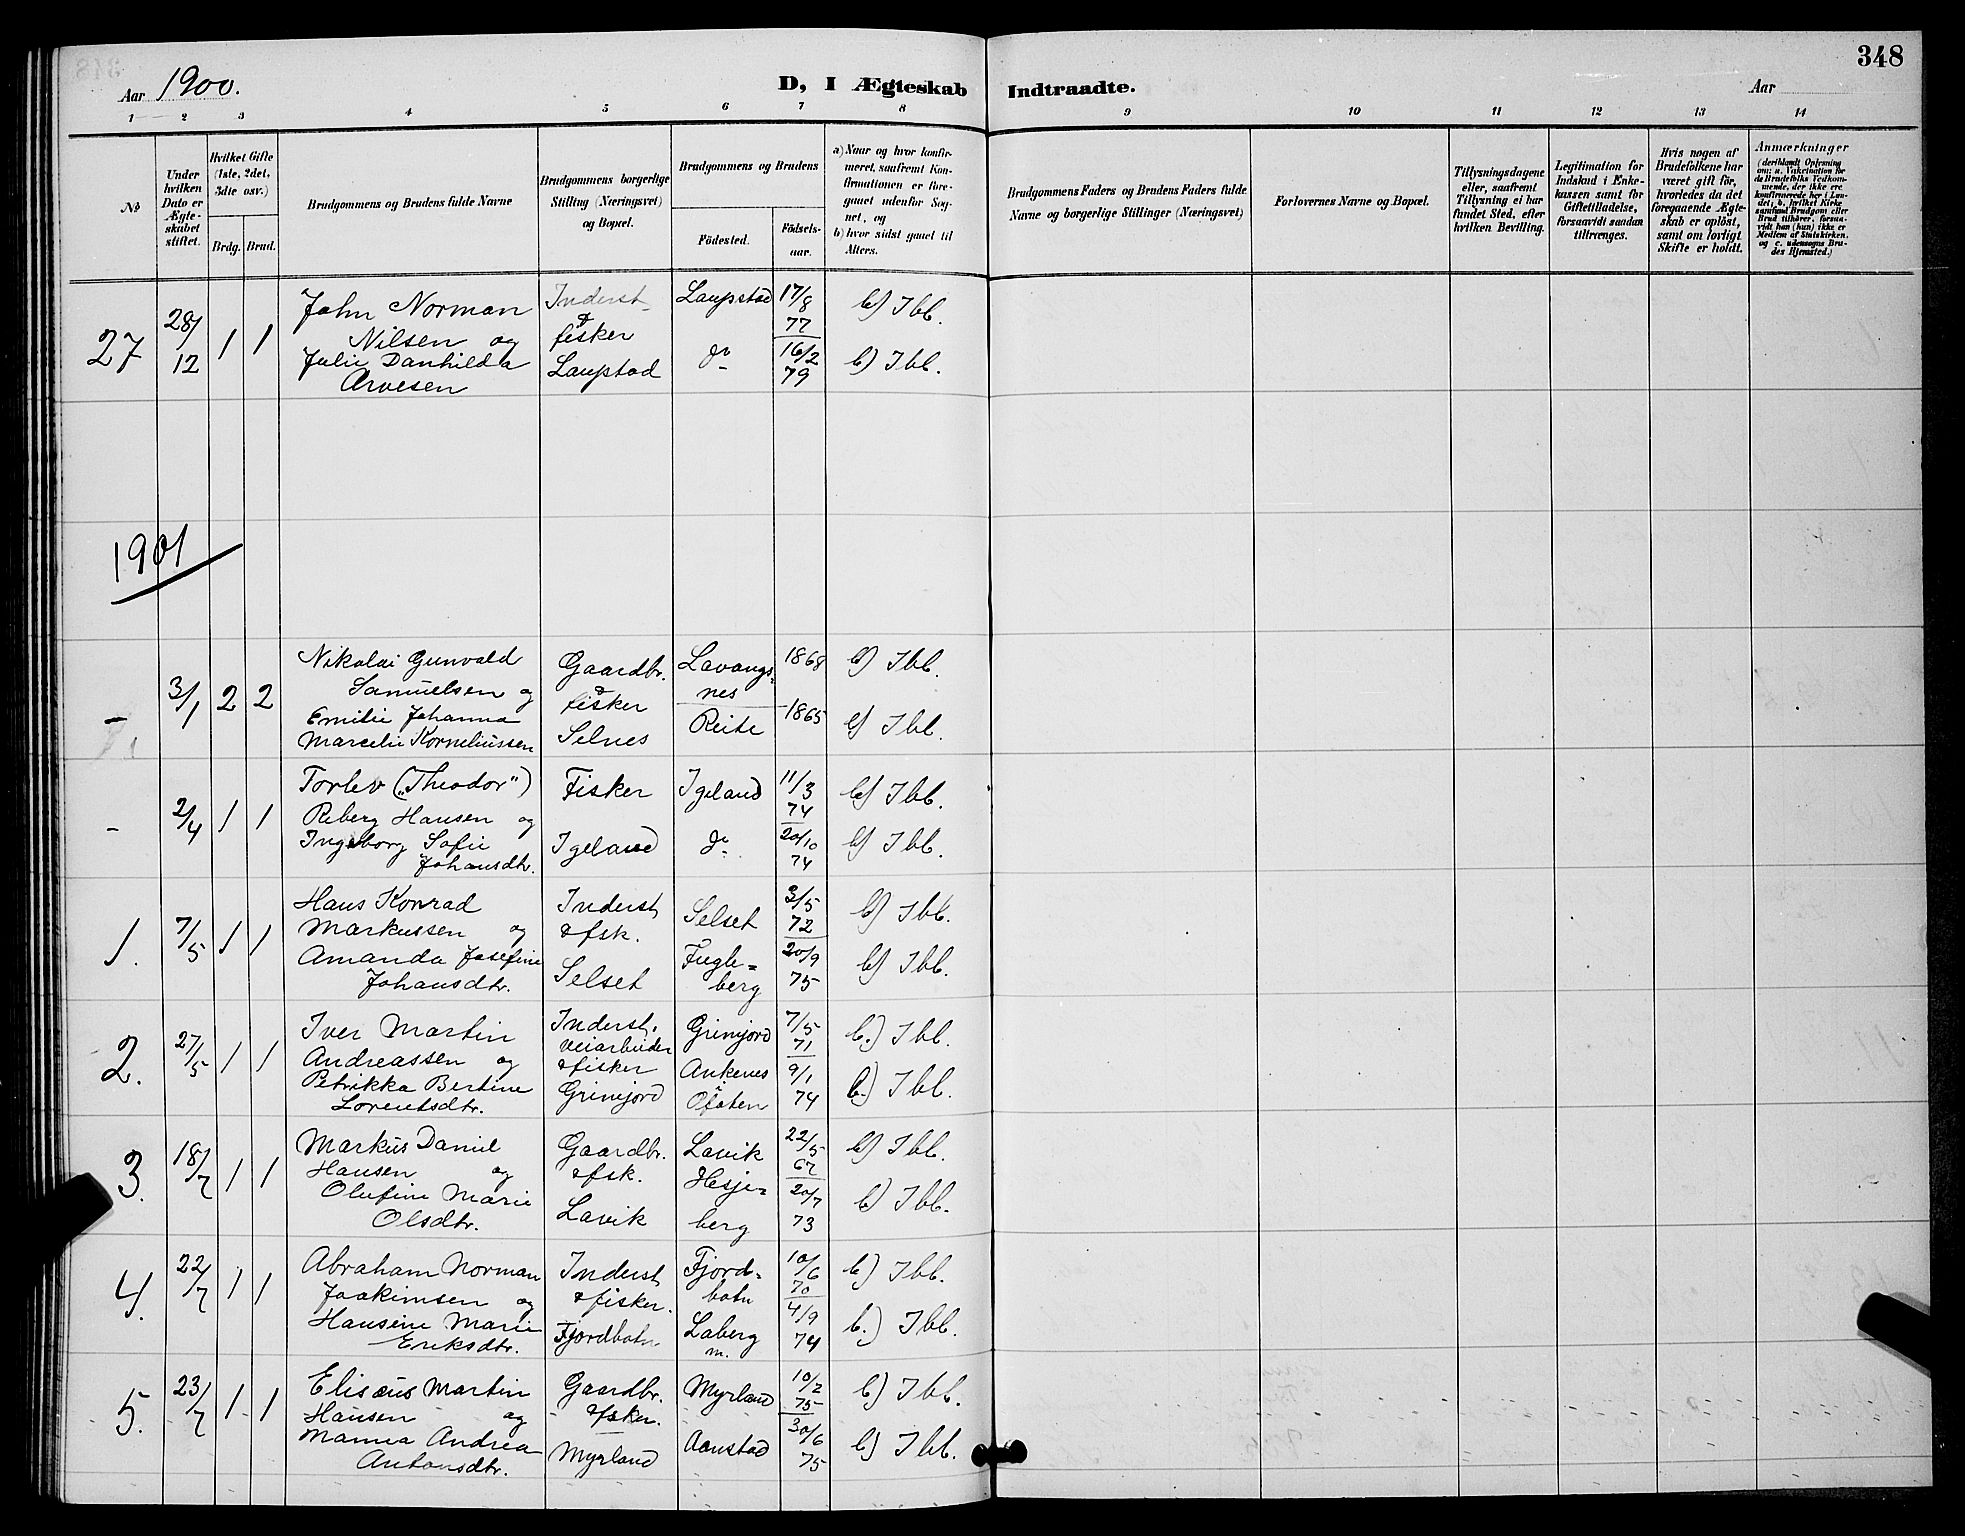 348
Aar 1900.
D, I Ægteskab Indtraadte.
Aar
1 2 3 4 5 6 7 8 9 10 11 12 13 14
№
Under
hvilken
Dato er
Ægte-
skabet
stiftet.
Hvilket Gifte
(1ste, 2det,
3die osv.)
Brdg. Brud.
Brudgommens og Brudens fulde Navne
Brudgommens borgerlige
Stilling (Næringsvei)
og Bopæl.
Brudgommens og Brudens
Födested.
Födsels-
aar.
a) Naar og hvor konfir-
meret, saafremt Kon-
firmationen er fore-
gaaet udenfor Sog-
net, og
b) hvor sidst gaaet til
Alters.
Brudgommens Faders og Brudens Faders fulde
Navne og borgerlige Stillinger (Næringsvei)
Forlovernes Navne og Bopæl.
Tillysningsdagene
eller, saafremt
Tillysning ei har
fundet Sted, efter
hvilken Bevilling.
Legitimation for
Indskud i Enke-
kassen samt for
Giftetilladelse,
forsaavidt saadan
tiltrænges.
Hvis nogen af
Brudefolkene har
været gift för,
hvorledes da det
foregaaende Ægte-
skab er oplöst,
samt om lovligt
Skifte er holdt.
Anmærkninger
(deriblandt Oplysning
om: a. Vakcination for
de Brudefolks Vedkom-
mende, der ikke ere
konfirmerede her i Lan-
det; b. hvilket Kirke-
samfund Brudgom eller
Brud tilhörer, forsaa-
vidt han (hun) ikke er
Medlem af Statskirken.
og c. udensogns Bru-
des Hjemsted.)
27 28/12 1 1
John Norman
Nilsen og
Julie Danhilda
Arvesen
Inderst
&
fisker
Laupstad
Laupstad
do
17/8
77
16/2
79
b) Ibb.
b) Ibb.
1901
- 3/1 2 2
Nikolai Gunvald
Samuelsen og
Emilie Johanna
Marcelie Korneliussen
Gaardbr.
&
fisker
Selnes
Lavangs-
nes
Reite
1868
1865
b) Ibb.
b) Ibb.
- 2/4 1 1
Torlev („Theodor")
Riberg Hansen og
Ingeborg Sofie
Johansdtr.
Fisker
Igeland
Igeland
do
11/3
74
20/10
74
b) Ibb.
b) Ibb.
1. 7/5 1 1
Hans Konrad
Markussen og
Amanda Josefine
Johansdtr.
Inderst
& fsk.
Selset
Selset
Fugle-
berg
3/5
72
20/9
75
b) Ibb.
b) Ibb.
2. 27/5 1 1
Iver Martin
Andreassen og
Petrikka Bertine
Lorentsdtr.
Inderst.
veiarbeider
& fisker
Grimjord
Grimjord
Ankenes
Ofoten
7/5
71
9/1
74
b.) Ibb.
b.) Ibb.
3. 18/7 1 1
Markus Daniel
Hansen og
Olufine Marie
Olsdtr.
Gaardbr.
& fsk.
Lavik
Lavik
Hesje-
berg
22/5
67
20/7
73
b) Ibb.
b) Ibb.
4. 22/7 1 1
Abraham Norman
Joakimsen og
Hansine Marie
Eriksdtr.
Inderst
& fisker.
Fjordbotn
Fjord-
botn
Laberg
m.
10/6
70
4/9
74
b) Ibb.
b.) Ibb.
5. 23/7 1 1
Elisæus Martin
Hansen og
Manna Andrea
Antonsdtr.
Gaardbr.
& fsker.
Myrland
Myrland
Aanstad
10/2
75
30/6
75
b) Ibb.
b) Ibb.